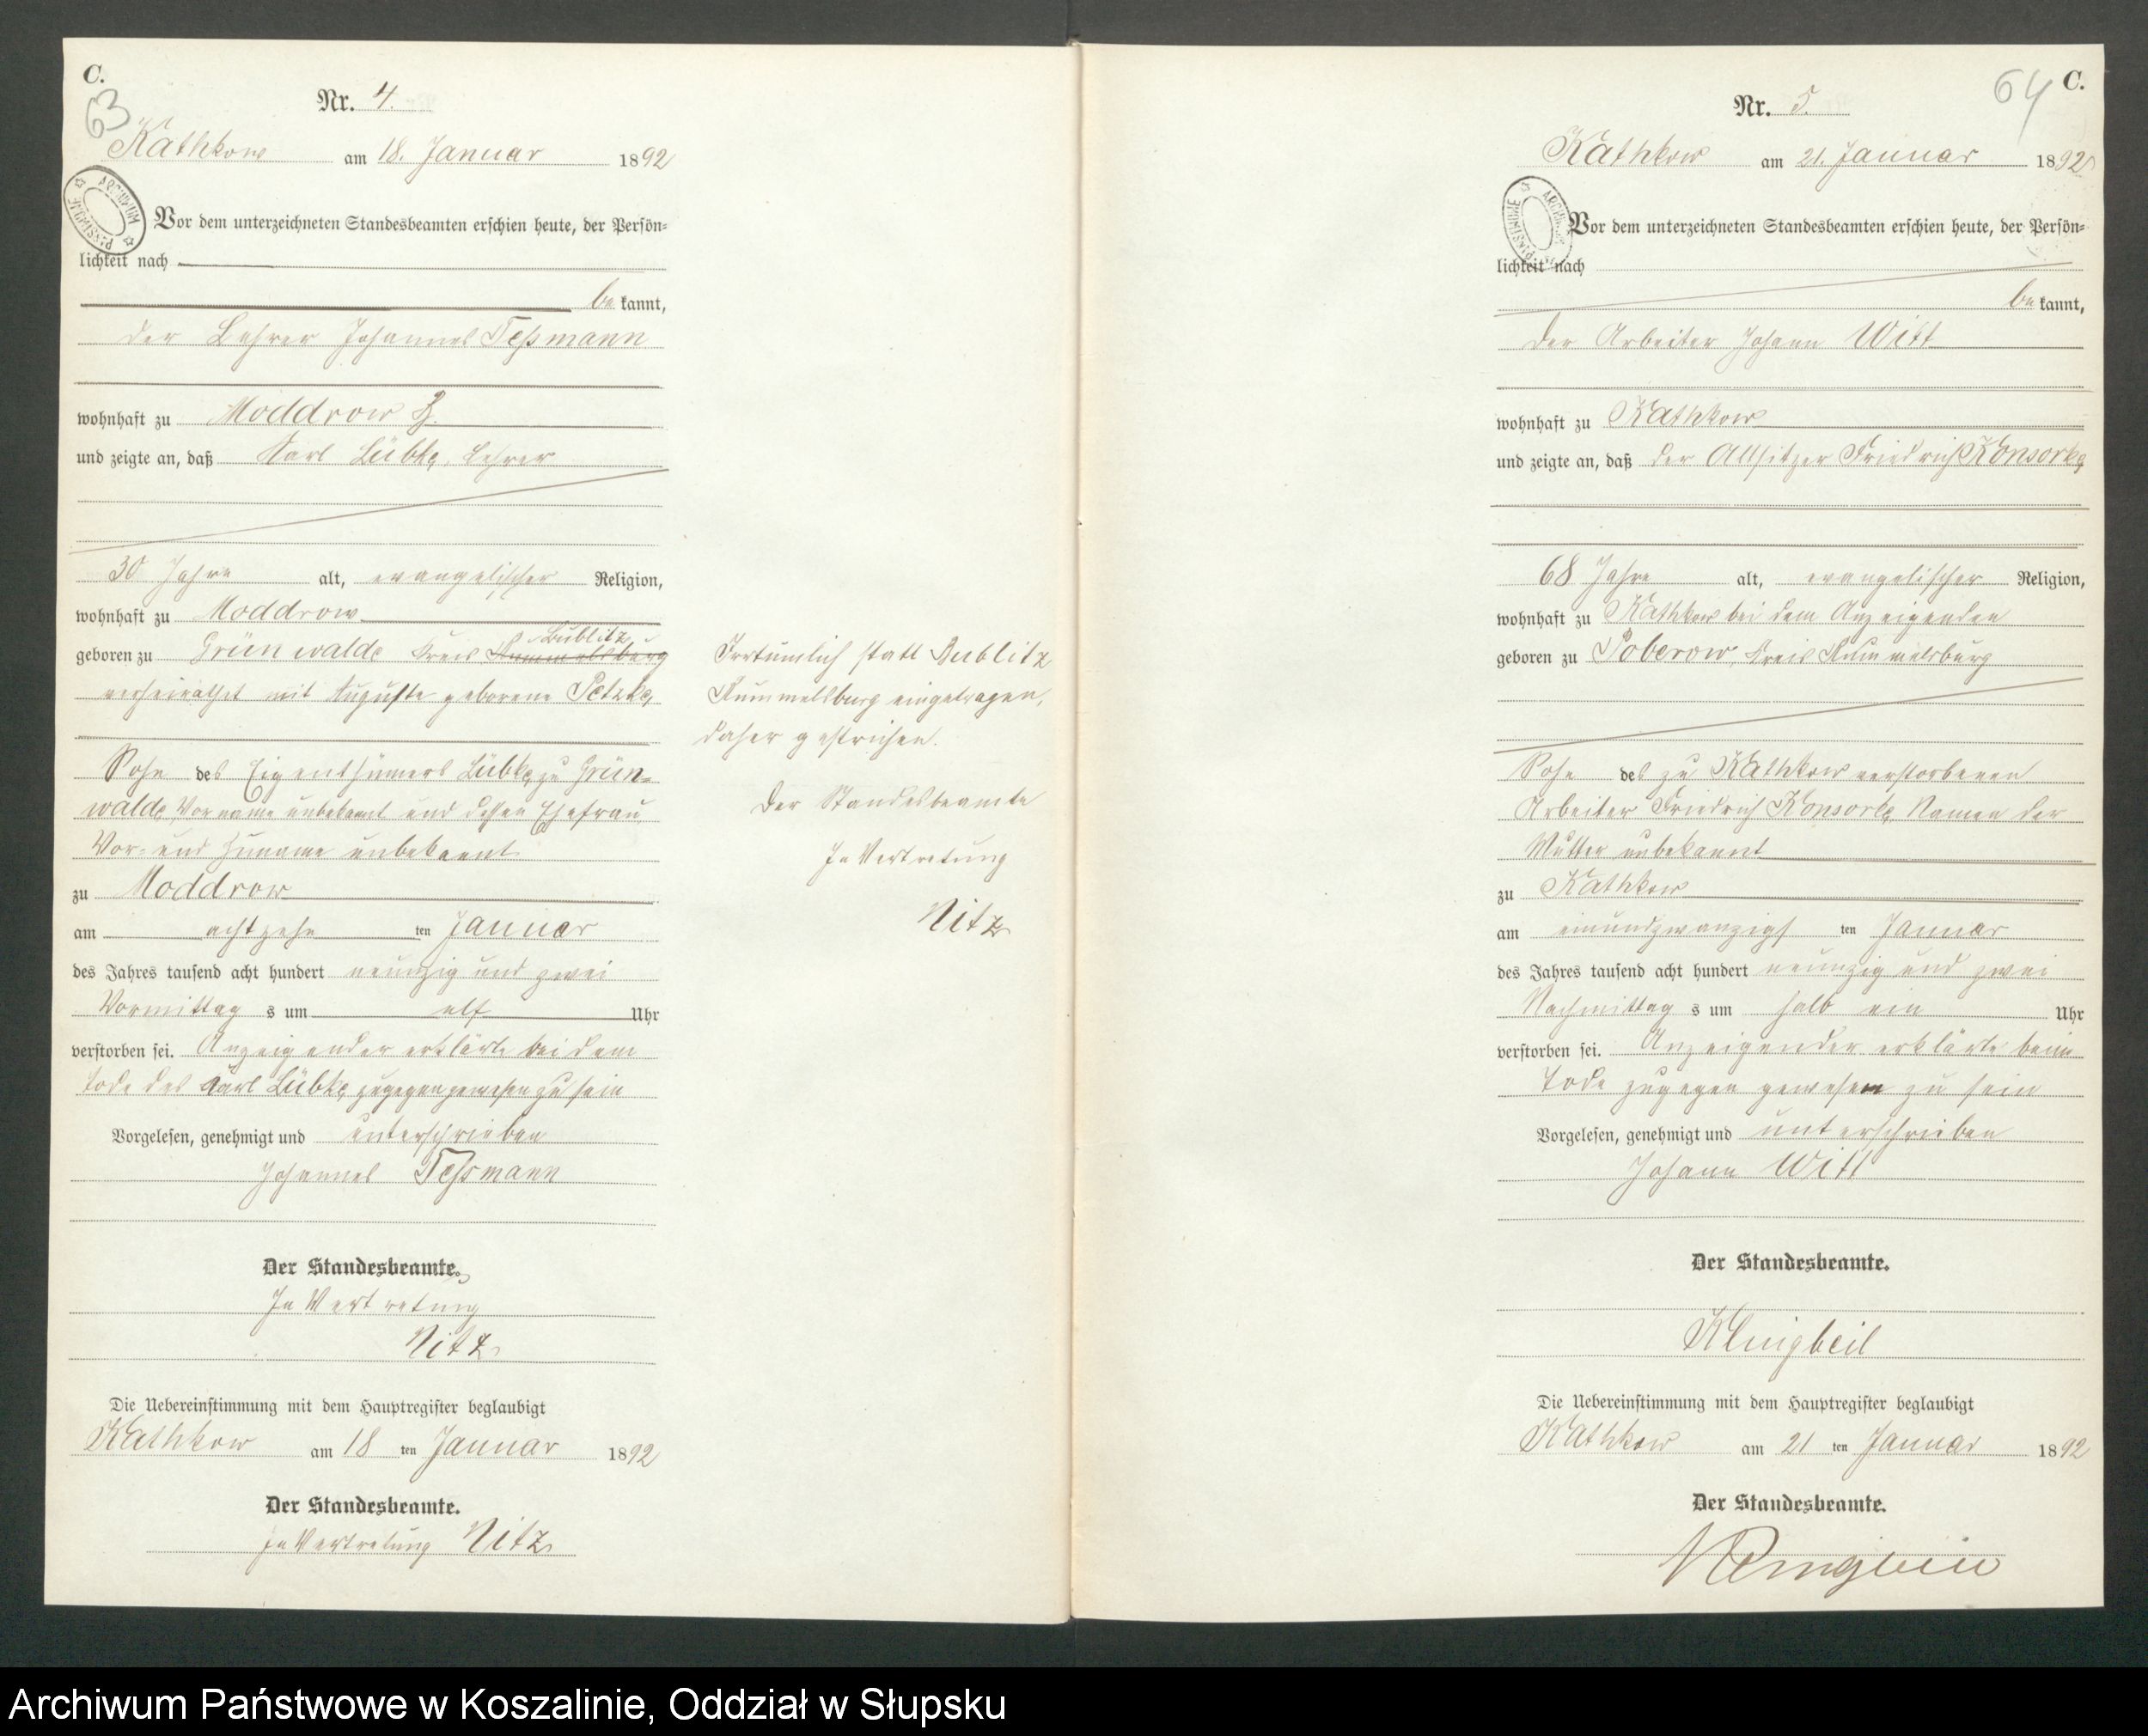 C.
63
Nr. 4.
Kathkow am 18. Januar 1892
ARCHIWUM PAŃSTWOWE
Vor dem unterzeichneten Standesbeamten erschien heute, der Persön=
lichkeit nach
be kannt,
der Lehrer Johannes Teßmann
wohnhaft zu Moddrow
und zeigte an, daß Karl Lübke, Lehrer
30 Jahre alt, evangelischer Religion,
wohnhaft zu Moddrow
Bublitz
geboren zu Grünwalde Kreis Rummelsburg
verheirathet mit Auguste geborene Petzke,
Sohn des Eigenthümers Lübke, zu Grün=
walde, Vorname unbekannt und dessen Ehefrau
Vor- und Zuname unbekannt
zu Moddrow
am achtzehn ten Januar
des Jahres tausend acht hundert neunzig und zwei
Vormittag s um elf Uhr
verstorben sei. Anzeigender erklärte bei dem
Tode des Karl Lübke, zugegen gewesen zu sein
Vorgelesen, genehmigt und unterschrieben
Johannes Teßmann
Der Standesbeamte.
In Vertretung
Nitz
Die Uebereinstimmung mit dem Hauptregister beglaubigt
Kathkow am 18 ten Januar 1892
Der Standesbeamte.
In Vertretung Nitz
Irrtümlich statt Bublitz
Rummelsburg eingetragen,
daher gestrichen.
Der Standesbeamte
In Vertretung
Nitz
64
C.
Nr. 5.
Kathkow am 21. Januar 1892
ARCHIWUM PAŃSTWOWE
Vor dem unterzeichneten Standesbeamten erschien heute, der Persön=
lichkeit nach
be kannt,
der Arbeiter Johann Witt
wohnhaft zu Kathkow
und zeigte an, daß der Altsitzer Friedrich Konsorke,
68 Jahre alt, evangelischer Religion,
wohnhaft zu Kathkow bei dem Anzeigenden
geboren zu Poberow, Kreis Rummelsburg
Sohn des zu Kathkow verstorbenen
Arbeiter Friedrich Konsorke, Namen der
Mutter unbekannt
zu Kathkow
am einundzwanzigs ten Januar
des Jahres tausend acht hundert neunzig und zwei
Nachmittag s um halb ein Uhr
verstorben sei. Anzeigender erklärte beim
Tode zugegen gewesen zu sein
Vorgelesen, genehmigt und unterschrieben
Johann Witt
Der Standesbeamte.
Klingbeil
Die Uebereinstimmung mit dem Hauptregister beglaubigt
Kathkow am 21 ten Januar 1892
Der Standesbeamte.
Klingbeil
Archiwum Państwowe w Koszalinie, Oddział w Słupsku